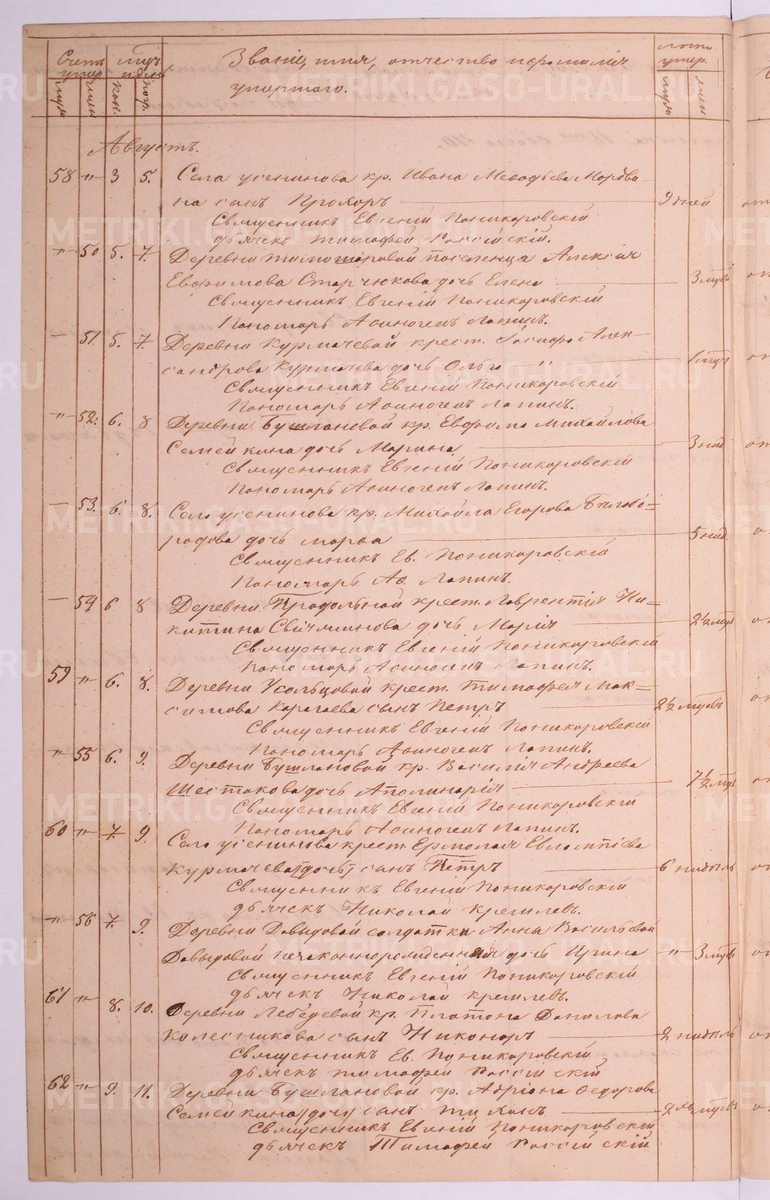 Счетъ умер. Мцъ и день Званіе, имя, отчество и фамилія умершаго. Лѣта умер.
муж. жен. кон. погр. муж. жен.
Августъ.
58 " 3 5. Села Усенинова кр. Ивана Меѳодьева Морозо-
ва сынъ Прохоръ 9 дней
Священникъ Евгеній Поникоровскій
дьячекъ Тимофей Россійскій.
" 50 5. 7. Деревни поселенца Алексія
Евфимова Старчюкова дочь Елена 3 мцъ
Священникъ Евгеній Поникоровскій
Пономарь Аѳиногенъ Лапинъ.
— 51 5. 7. Деревни Курмачевой крест. Іосифа Алек-
сандрова Курмачева дочь Ольга 1 мцъ
Священникъ Евгеній Поникоровскій
Пономарь Аѳиногенъ Лапинъ.
" 52. 6. 8 Деревни Бушлановой кр. Евфима Михайлова
Семейкина дочь Марина 3 нед
Священникъ Евгеній Поникоровскій
Пономарь Аѳиногенъ Лапинъ.
— 53. 6. 8. Села Усенинова кр. Михайла Егорова Бѣлобо=
родова дочь Марѳа 5 нед
Священникъ Ев. Поникоровскій
Пономарь Аѳ. Лапинъ.
— 54 6 8 Деревни Продольной крест. Лаврентія Ни=
китина дочь Марія 2½ мцъ
Священникъ Евгеній Поникоровскій
Пономарь Аѳиногенъ Лапинъ.
59 " 6. 8. Деревни Усольцовой крест. Тимофея Мак=
симова Карагаева сынъ Петръ 2½ мцевъ
Священникъ Евгеній Поникоровскій
Пономарь Аѳиногенъ Лапинъ.
" 55 6. 9. Деревни Бушлановой кр. Василія Андреева
Шестакова дочь Аполинарія 7½ мцъ
Священникъ Евгеній Поникоровскій
Пономарь Аѳиногенъ Лапинъ.
60 " 7. 9. Села Усенинова крест. Ермолая Евлампіева
Курмачева [дочь] сынъ Петръ 6 недѣль
Священникъ Евгеній Поникоровскій
дьячекъ Николай Кремлевъ.
" 56 7. 9. Деревни Давыдовой солдатки Анны Васильевой
Давыдовой незаконнорожденная дочь Ирина " 3 мцевъ
Священникъ Евгеній Поникоровскій
дьячекъ Николай Кремлевъ.
61 " 8. 10. Деревни Лебедевой кр. Платона Данилова
Колесникова сынъ Никоноръ 2 недѣль
Священникъ Ев. Поникоровскій
дьячекъ Тимофей Россійскій
62 " 9. 11. Деревни Бушлановой кр. Адріона Ѳедорова
Семейкина [дочь] сынъ Тихонъ 2 мцевъ
Священникъ Евгеній Поникоровскій
дьячекъ Тимофей Россійскій
METRIKI.GASO-URAL.RU